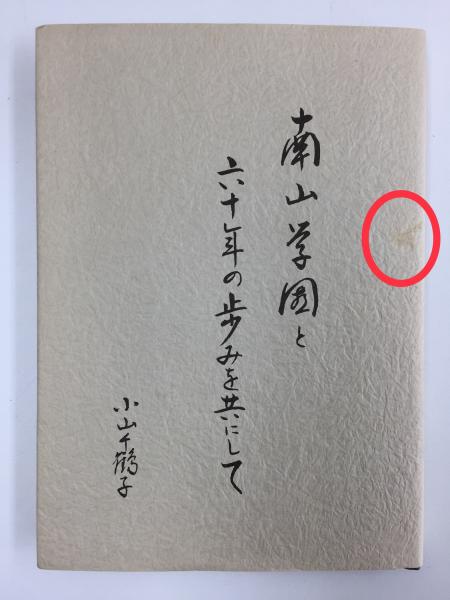 南山学園と
六十年の歩みを共にして
小山千鶴子